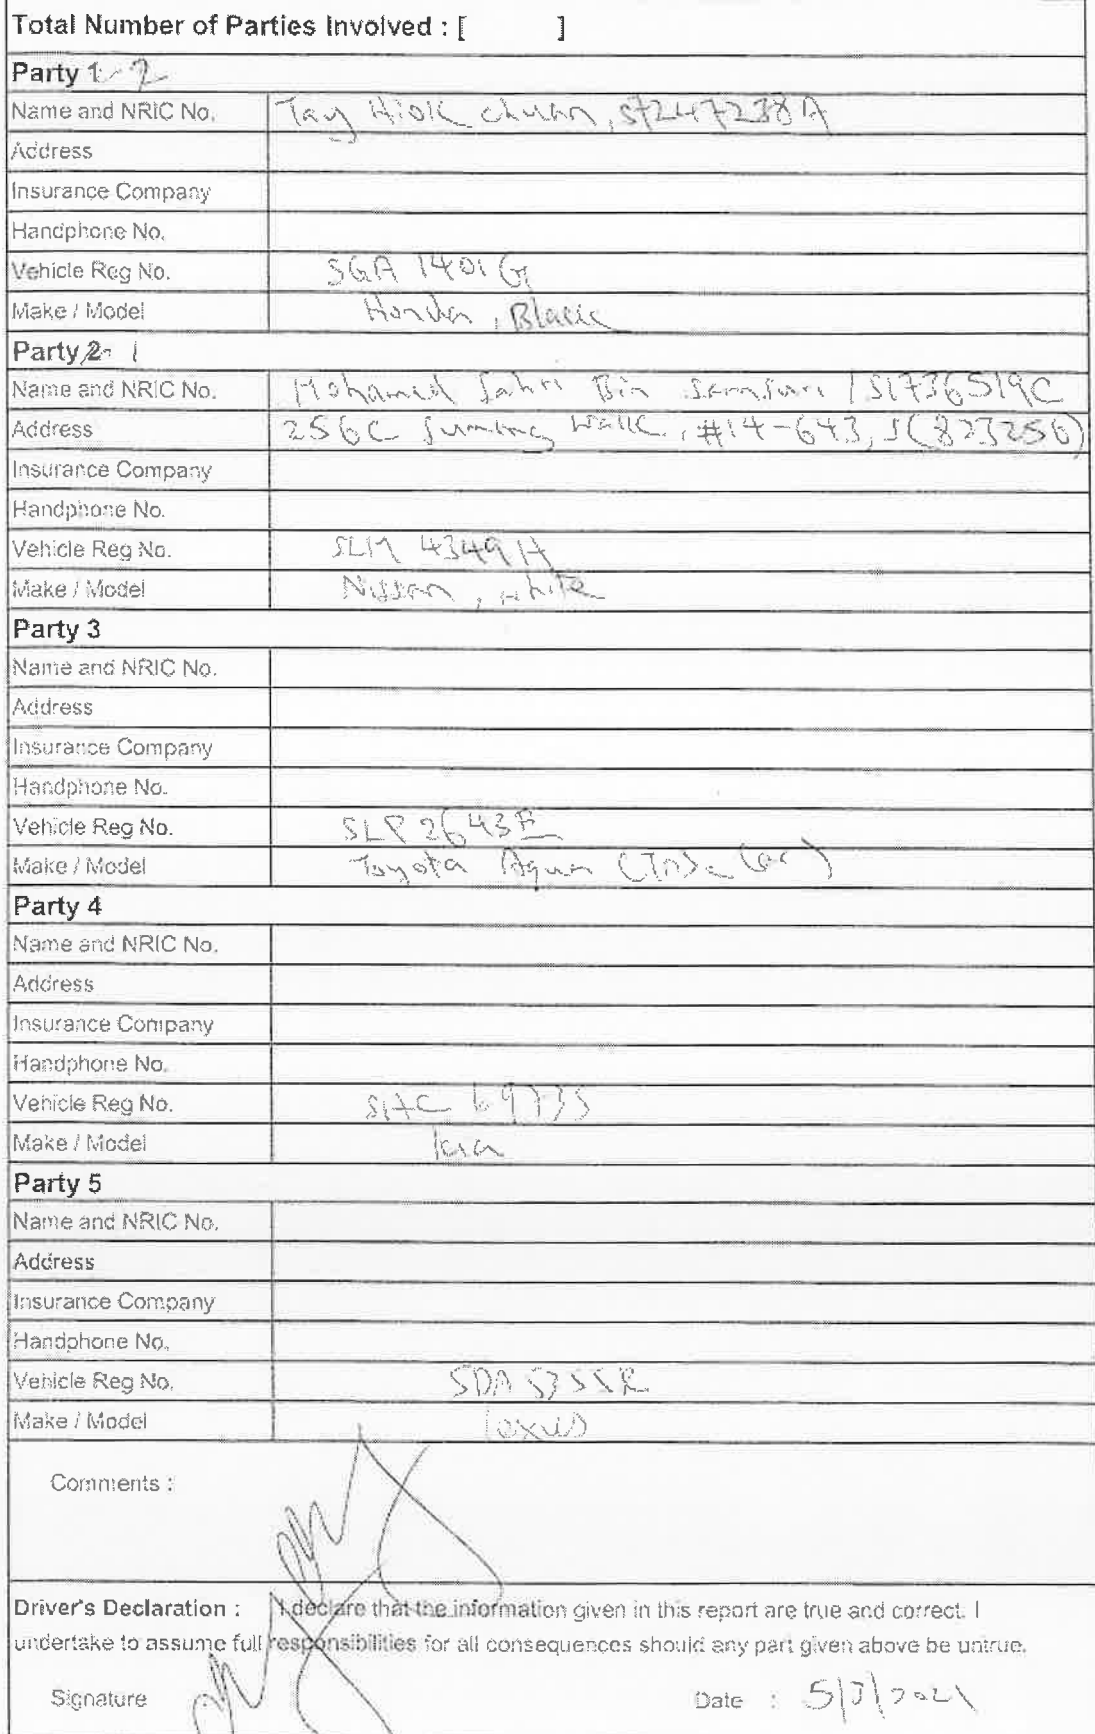 Total Number of Parties Involved : [ ]
Party 1 2
Name and NRIC No. Tay Hiok chuan, S7247238A
Address
Insurance Company
Handphone No.
Vehicle Reg No. SGA 1401G
Make / Model Honda, Black
Party 2 1
Name and NRIC No. Mohamed Sahri Bin Samsuri / S1736519C
Address 256C Sumang Walk, #14-643, S(823256)
Insurance Company
Handphone No.
Vehicle Reg No. SLM 4349H
Make / Model Nissan, white
Party 3
Name and NRIC No.
Address
Insurance Company
Handphone No.
Vehicle Reg No. SLP 2643E
Make / Model Toyota Aqua
Party 4
Name and NRIC No.
Address
Insurance Company
Handphone No.
Vehicle Reg No.
Make / Model kia
Party 5
Name and NRIC No.
Address
Insurance Company
Handphone No.
Vehicle Reg No.
Make / Model lexus
Comments :
Driver's Declaration : I declare that the information given in this report are true and correct. I
undertake to assume full responsibilities for all consequences should any part given above be untrue.
Signature Date : 5/3/2021